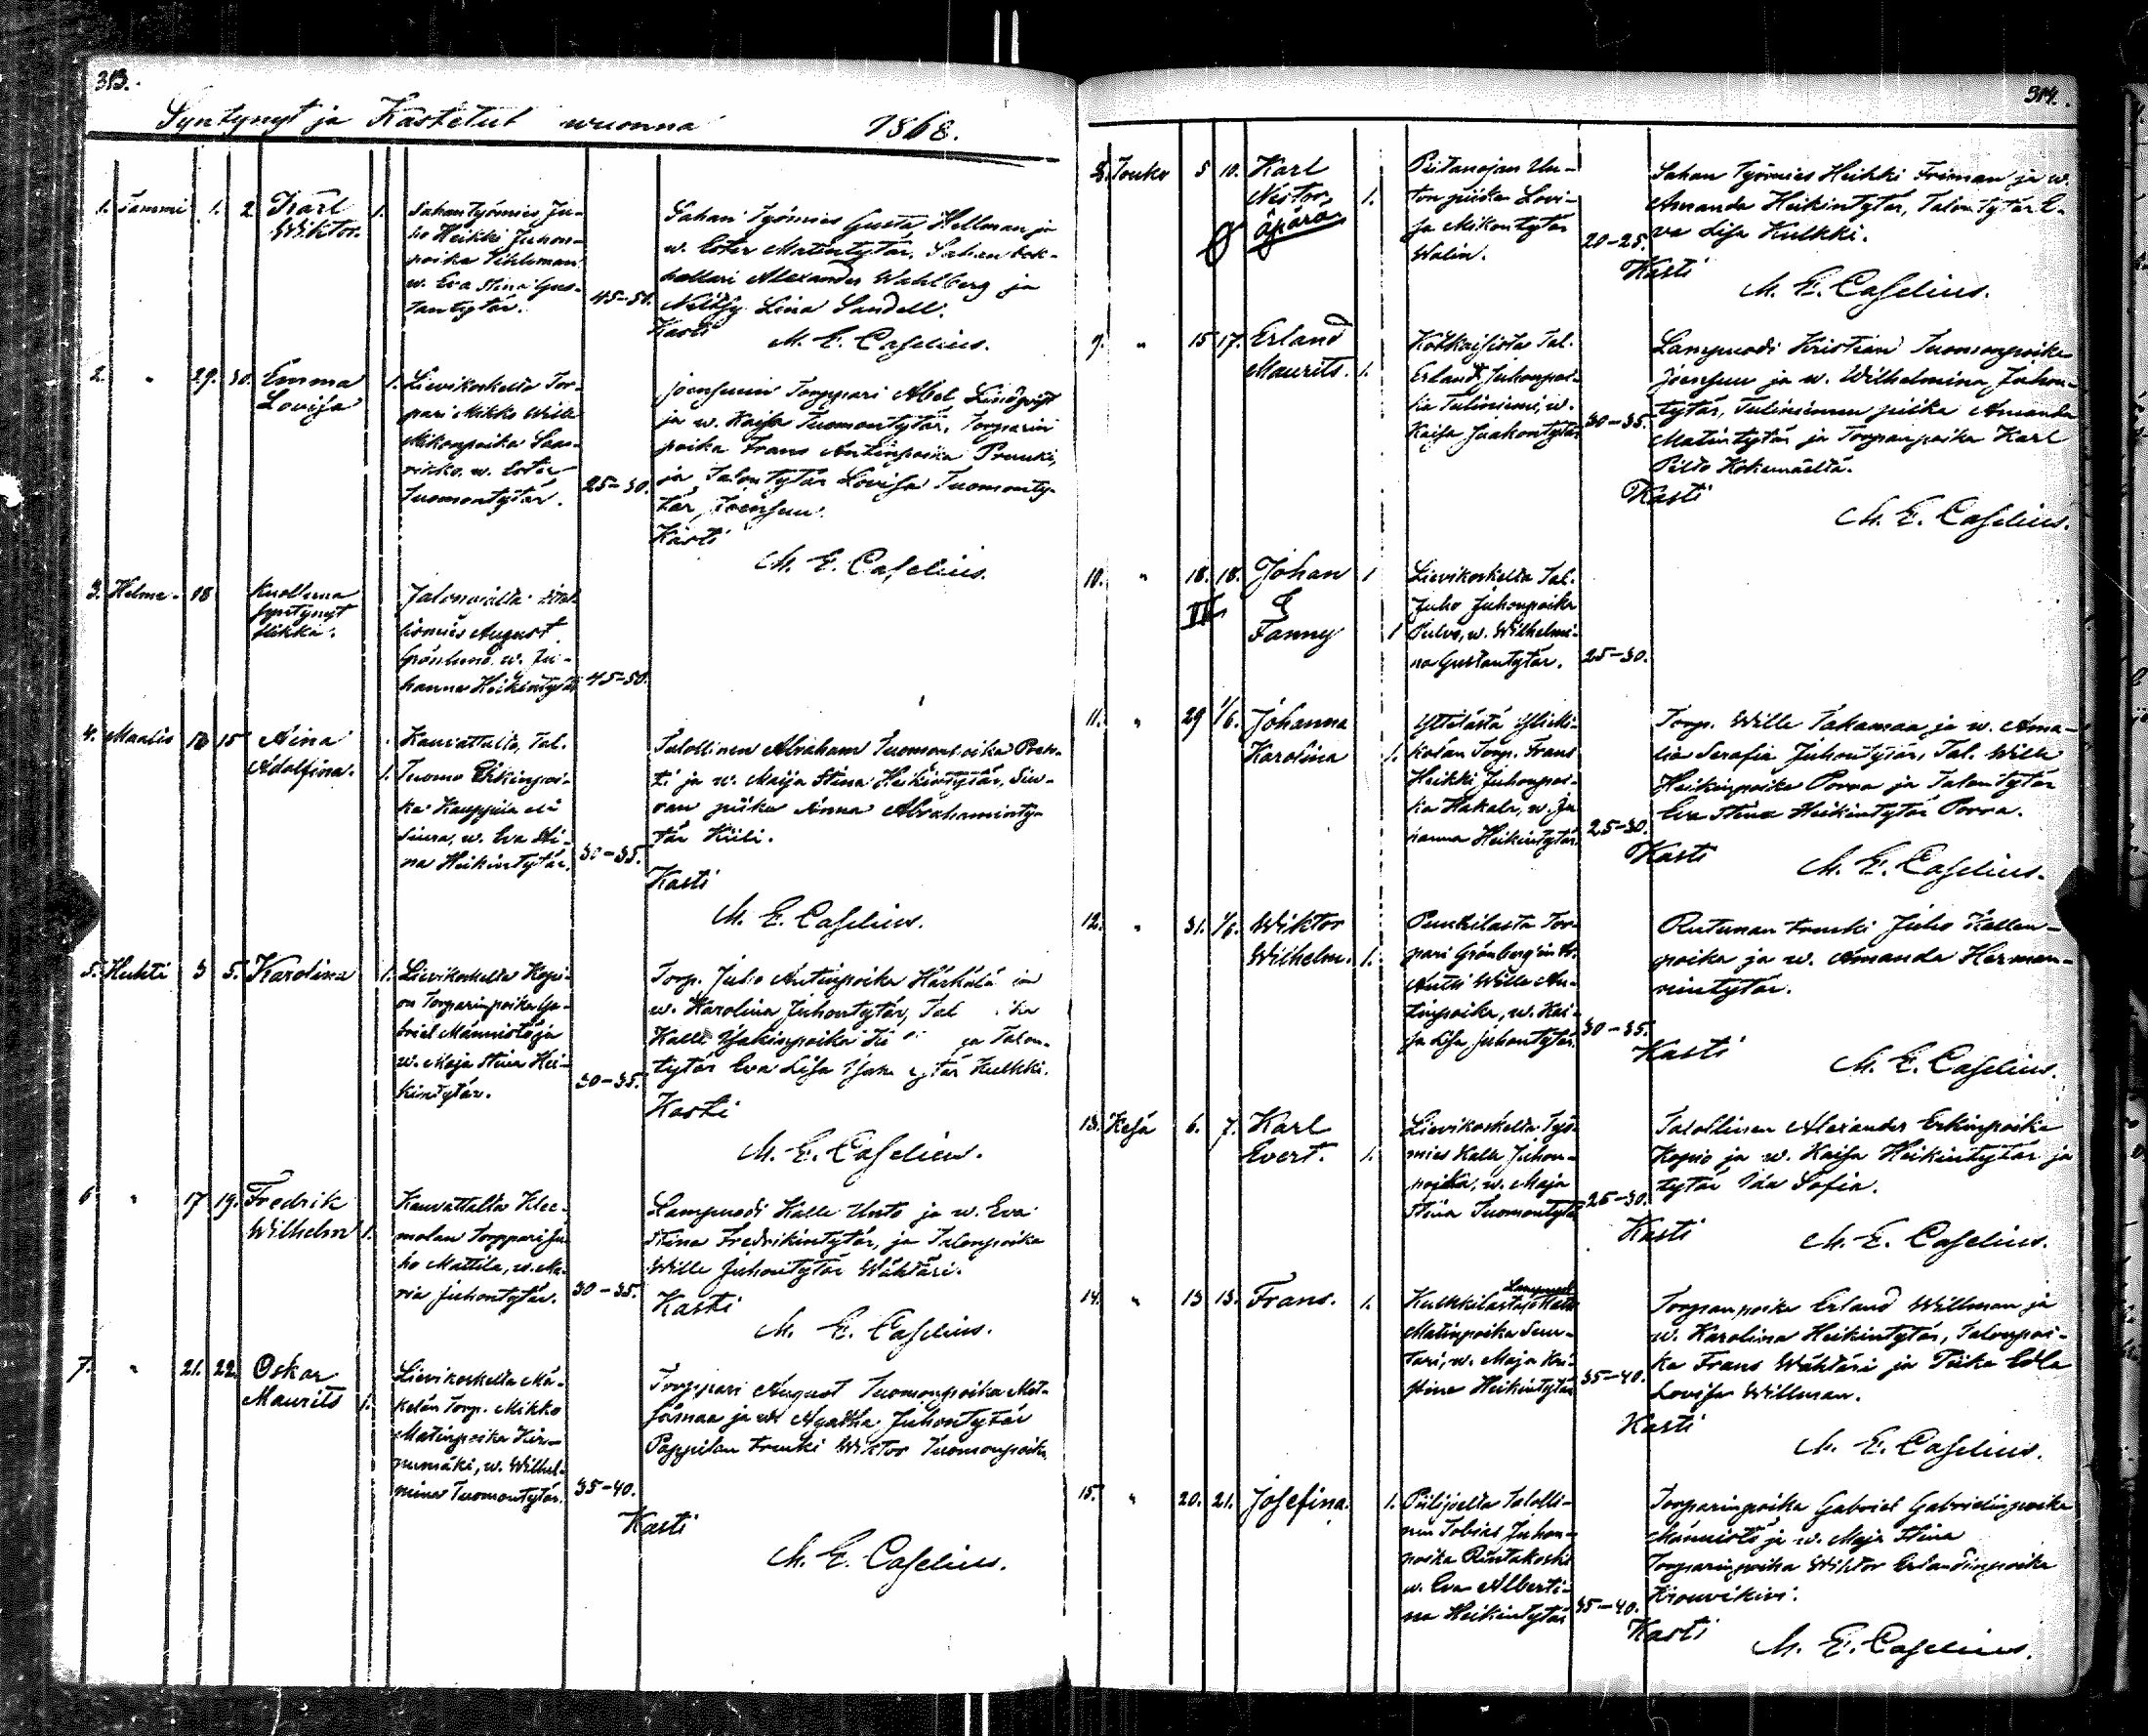 313.
Syntynyt ja Kastetut wuonna 1868.
1. Tammi 1. 2. Karl Wiktor. 1.
Sahan työmies, Ju-
ho Heikki Juhon-
poika
w. Eva Stina Gus-
tantytär. 45-50.
Sahan Työmies Gusta Hellman ja
w. Ester Matintytär, Sahan bok-
hollari Alexander Wahlberg ja
Lina Sandell.
Kasti
M. E. Caselius.
2. " 29. 30. Emma Lovisa 1.
Lievikoskelta Tor-
pari Mikko Wille
Mikonpoika Saa-
w. Ester
Tuomontytär. 25-30.
Joensuun Torppari Abel Lindqvist
ja w. Kaisa Tuomontytär, Torparin
poika Frans Antinpoika Prunki,
ja Talontytär Lovisa Tuomonty-
tär, Joensuu.
Kasti
M. E. Caselius.
3. Helme- 18
Kuolluna
syntynyt
flikka.
August
Grönlund, w. Ju-
hanna Heikintytär 45-50.
4. Maalis 15 Aina Adolfina. 1.
Kauvattalta, Tal.
Tuomo Erkinpoi-
ka Kauppila eli
Siura, w. Eva Sti-
na Heikintytär. 30-35.
Talollinen Abraham Tuomonpoika
ja w. Maija Stina Heikintytär, Siu-
ran piika Anna Abrahaminty-
tär Kiili.
Kasti
M. E. Caselius.
5. Huhti 5. Karolina 1.
Lievikoskelta Kopi-
on Torparinpoika Ga-
briel Männistö ja
w. Maja Stina Hei-
kintytär. 30-35.
Torp. Juho Antinpoika Härkälä ja
w. Karolina Juhontytär,
Kalle Isakinpoika ja Talon-
tytär Eva Lisa Kulkki.
Kasti
M. E. Caselius.
6 " 17 19. Fredrik Wilhelm 1.
Kauvattalta Klee-
molan Torppari Ju-
ho Mattila, w. Ma-
ria Juhontytär. 30-35.
Lampuodi Kalle Unto ja w. Eva
Stina Fredrikintytär, ja Talonpoika
Wille Juhontytär Wähtäri.
Kasti
M. E. Caselius.
7. " 21. 22. Oskar Maurits 1.
Lievikoskelta Mä-
kelän Torp. Mikko
Matinpoika Kir-
punmäki, w. Wilhel-
mina Tuomontytär. 35-40.
Torppari August Tuomonpoika Met-
sämaa ja w. Agatha Juhontytär
Pappilan Trenki Wiktor Tuomonpoika
Kasti
M. E. Caselius.
314.
8. Touko 5 10. Karl Nestor, äpärä 1.
Piitanojan Un-
ton piika Lovi-
sa Mikontytär
Walin. 20-25.
Sahan Työmies Heikki Friman ja w.
Amanda Heikintytär, Talontytär E-
va Lisa Kulkki.
Kasti
M. E. Caselius.
9. " 15 17. Erland Maurits. 1.
Tal.
Erland Juhonpoi-
ka Tuliniemi, w.
Kaisa Jaakontytär 30-35.
Lampuodi Kristian Tuomonpoika
Joensuu ja w. Wilhelmina Juhon-
tytär, Tuliniemen piika Amanda
Matintytär ja Torparipoika Karl
Kokemäeltä.
Kasti
M. E. Caselius.
10. " 18. 18. Johan 1
&
Fanny 1
Lievikoskelta Tal.
Juho Juhonpoika
w. Wilhelmi-
na Gustantytär. 25-30.
11. " 29 1/6. Johanna Karolina 1.
Yttilästä
Torp. Frans
Heikki Juhonpoi-
ka Hakala, w. Jo-
hanna Heikintytär 25-30.
Torp. Wille Takamaa ja w. Ama-
lia Serafia Juhontytär, Tal. Wille
Heikinpoika Porra ja Talontytär
Eva Stina Heikintytär Porra.
Kasti
M. E. Caselius.
12. " 31. 1/6. Wiktor Wilhelm. 1.
Tor-
pari Grönberg'in
Antti Wille An-
tinpoika, w. Kai-
sa Lisa Juhontytär. 30-35.
Rutunan trenki Juho Kallen-
poika ja w. Amanda Herman-
nintytär.
Kasti
M. E. Caselius.
13. Kesä 6. 7. Karl Evert. 1.
Lievikoskelta Työ-
mies Kalle Juhon-
poika, w. Maja
Stina Tuomontytär 25-30.
Talollinen Alexander Erkinpoika
Kopio ja w. Kaisa Heikintytär ja
tytär Ida Sofia.
Kasti
M. E. Caselius.
14. " 13 13. Frans. 1.
Kulkkilasta Lampuodi
Matinpoika Suu-
tari, w. Maja Kri-
stina Heikintytär 35-40.
Torparipoika Erland Willman ja
w. Karolina Heikintytär, Talonpoi-
ka Frans Wähtäri ja Piika Edla
Lovisa Willman.
Kasti
M. E. Caselius.
15. " 20. 21. Josefina. 1.
Piilijoelta Talolli-
nen Tobias Juhon-
poika Rintakoski
w. Eva Alberti-
na Heikintytär 35-40.
Torparinpoika Gabriel Gabrielinpoika
Männistö ja w. Maja Stina
Torparinpoika Wiktor Erlandinpoika
Kasti
M. E. Caselius.